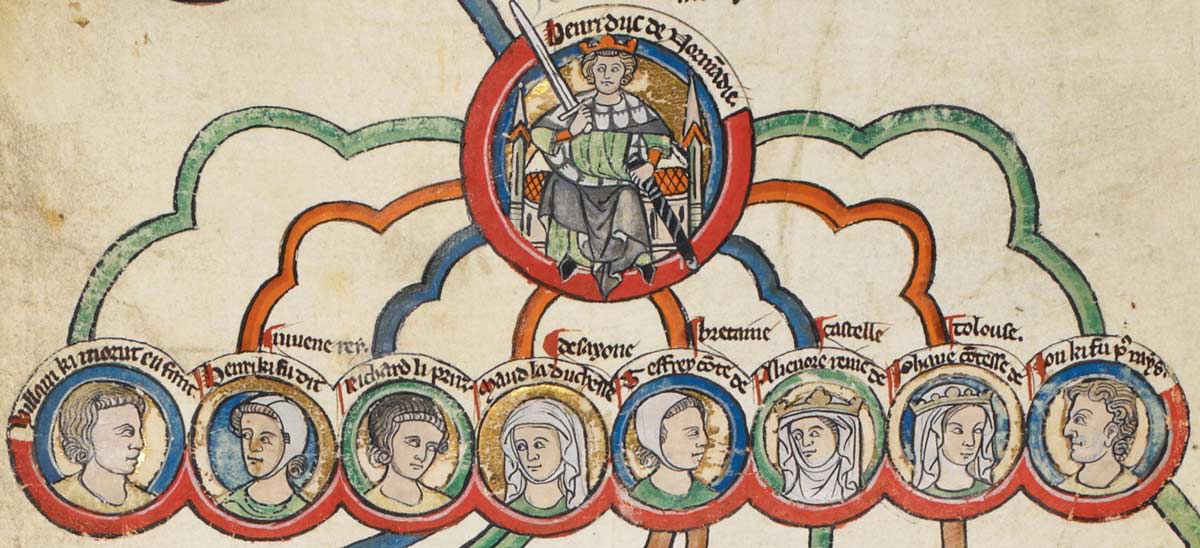 Henri duc de Normãdie.
Willam ki morut enfant
Henri ki fu dit
iuuene rey.
Richard li
Maud la duchesse
de saxone
Geffrey cõte de
bretaine
Alienore reine de
castelle
Iohane cõtesse de
tolouse.
Ion ki fu rays